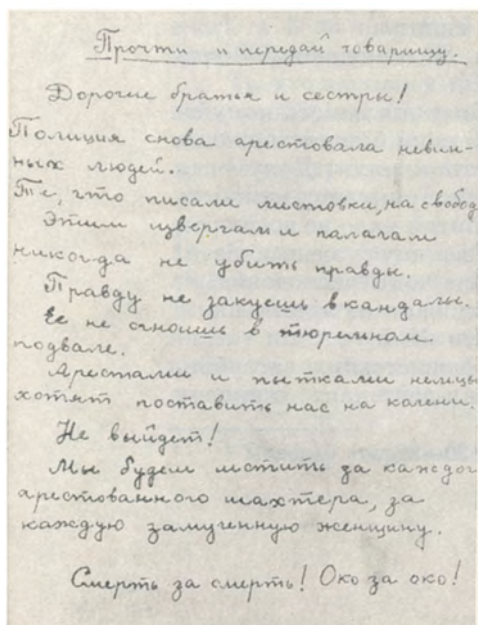 Прочти и передай товарищу.
Дорогие братья и сестры!
Полиция снова арестовала невин-
ных людей.
Те, что писали листовки, на свобод
Этим извергам и палачам
никогда не убить правды.
Правду не закуешь в кандалы.
Ее не сгноишь в тюремном
подвале.
Арестами и пытками немцы
хотят поставить нас на колени.
Не выйдет!
Мы будем мстить за каждог
арестованного шахтера, за
каждую замученную женщину.
Смерть за смерть! Око за око!